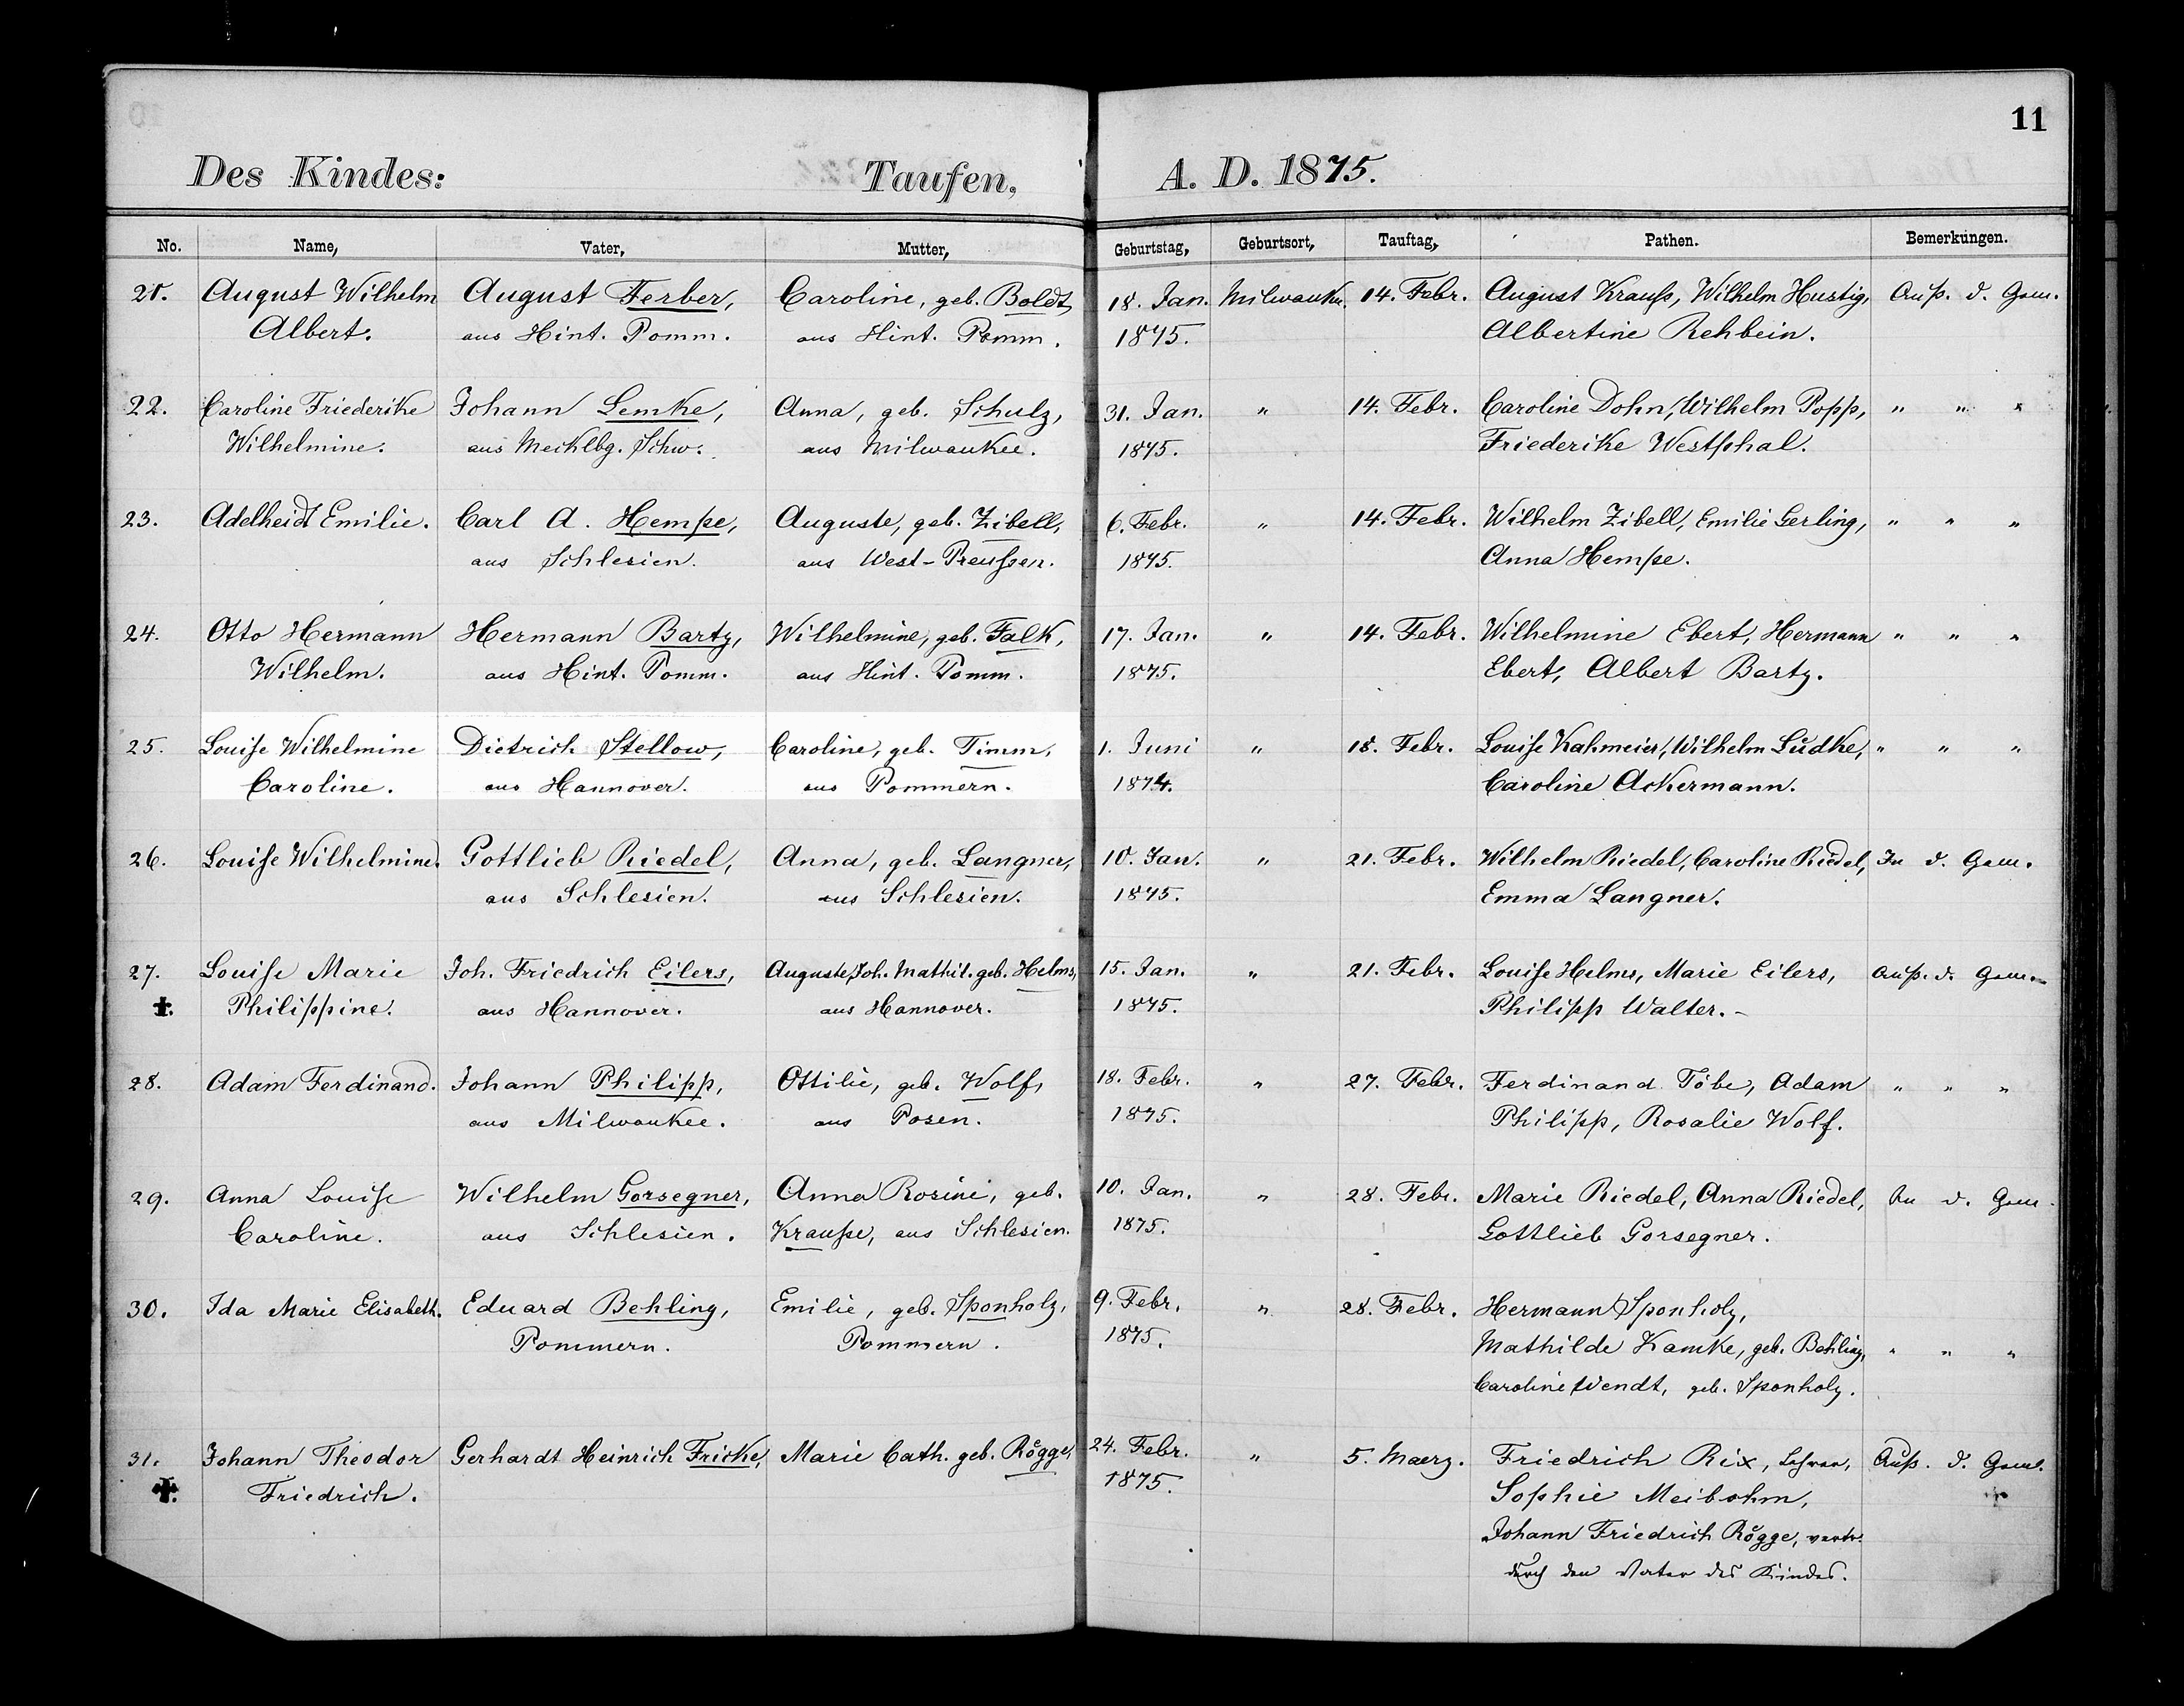 11
Des Kindes: Taufen, A. D. 1875.
No. Name, Vater, Mutter, Geburtstag, Geburtsort, Tauftag, Pathen. Bemerkungen.
21. August Wilhelm August Ferber, Caroline, geb. Boldt, 18. Jan. Milwaukee. 14. Febr. August Krauß, Wilhelm Hustig, Auß. d. Gem.
Albert. aus Hint. Pomm. aus Hint. Pomm. 1875. Albertine Rehbein.
22. Caroline Friederike Johann Lemke, Anna, geb. Schulz, 31. Jan. " 14. Febr. Caroline Dohn, Wilhelm Popp, " " "
Wilhelmine. aus Mecklbg. Schw. aus Milwaukee. 1875. Friederike Westphal.
23. Adelheid Emilie. Carl A. Hempe, Auguste, geb. Zibell, 6. Febr. " 14. Febr. Wilhelm Zibell, Emilie Gerling, " " "
aus Schlesien. aus West-Preußen. 1875. Anna Hempe.
24. Otto Hermann Hermann Bartz, Wilhelmine, geb. Falk, 17. Jan. " 14. Febr. Wilhelmine Ebert, Hermann " " "
Wilhelm. aus Hint. Pomm. aus Hint. Pomm. 1875. Ebert, Albert Bartz.
25. Louise Wilhelmine Dietrich Stellow, Caroline, geb. Timm, 1. Juni " 18. Febr. Louise Kahmeier, Wilhelm Lüdke, " " "
Caroline. aus Hannover. aus Pommern. 1874. Caroline Ackermann.
26. Louise Wilhelmine. Gottlieb Riedel, Anna, geb. Langner, 10. Jan. " 21. Febr. Wilhelm Riedel, Caroline Riedel, In d. Gem.
aus Schlesien. aus Schlesien. 1875. Emma Langner.
27. Louise Marie Joh. Friedrich Eilers, Auguste, Joh. Mathil. geb. Helms, 15. Jan. " 21. Febr. Louise Helms, Marie Eilers, Auß. d. Gem.
✝. Philippine. aus Hannover. aus Hannover. 1875. Philipp Walter. -
28. Adam Ferdinand. Johann Philipp, Ottilie, geb. Wolf, 18. Febr. " 27. Febr. Ferdinand Töbe, Adam " " "
aus Milwaukee. aus Posen. 1875. Philipp, Rosalie Wolf.
29. Anna Louise Wilhelm Gorsegner, Anna Rosine, geb. 10. Jan. " 28. Febr. Marie Riedel, Anna Riedel, In d. Gem.
Caroline. aus Schlesien. Krauße, aus Schlesien. 1875. Gottlieb Gorsegner.
30. Ida Marie Elisabeth. Eduard Behling, Emilie, geb. Sponholz, 9. Febr. " 28. Febr. Hermann Sponholz,
Pommern. Pommern. 1875. Mathilde Kamke, geb. Behling, " " "
Caroline Wendt, geb. Sponholz.
31. Johann Theodor Gerhardt Heinrich Fricke, Marie Cath. geb. Rögge, 24. Febr. " 5. Maerz. Friedrich Rix, Lehrer, Auß. d. Gem.
✝. Friedrich. 1875. Sophie Meibohm,
Johann Friedrich Rögge, vertr.
durch den Vater des Kindes.